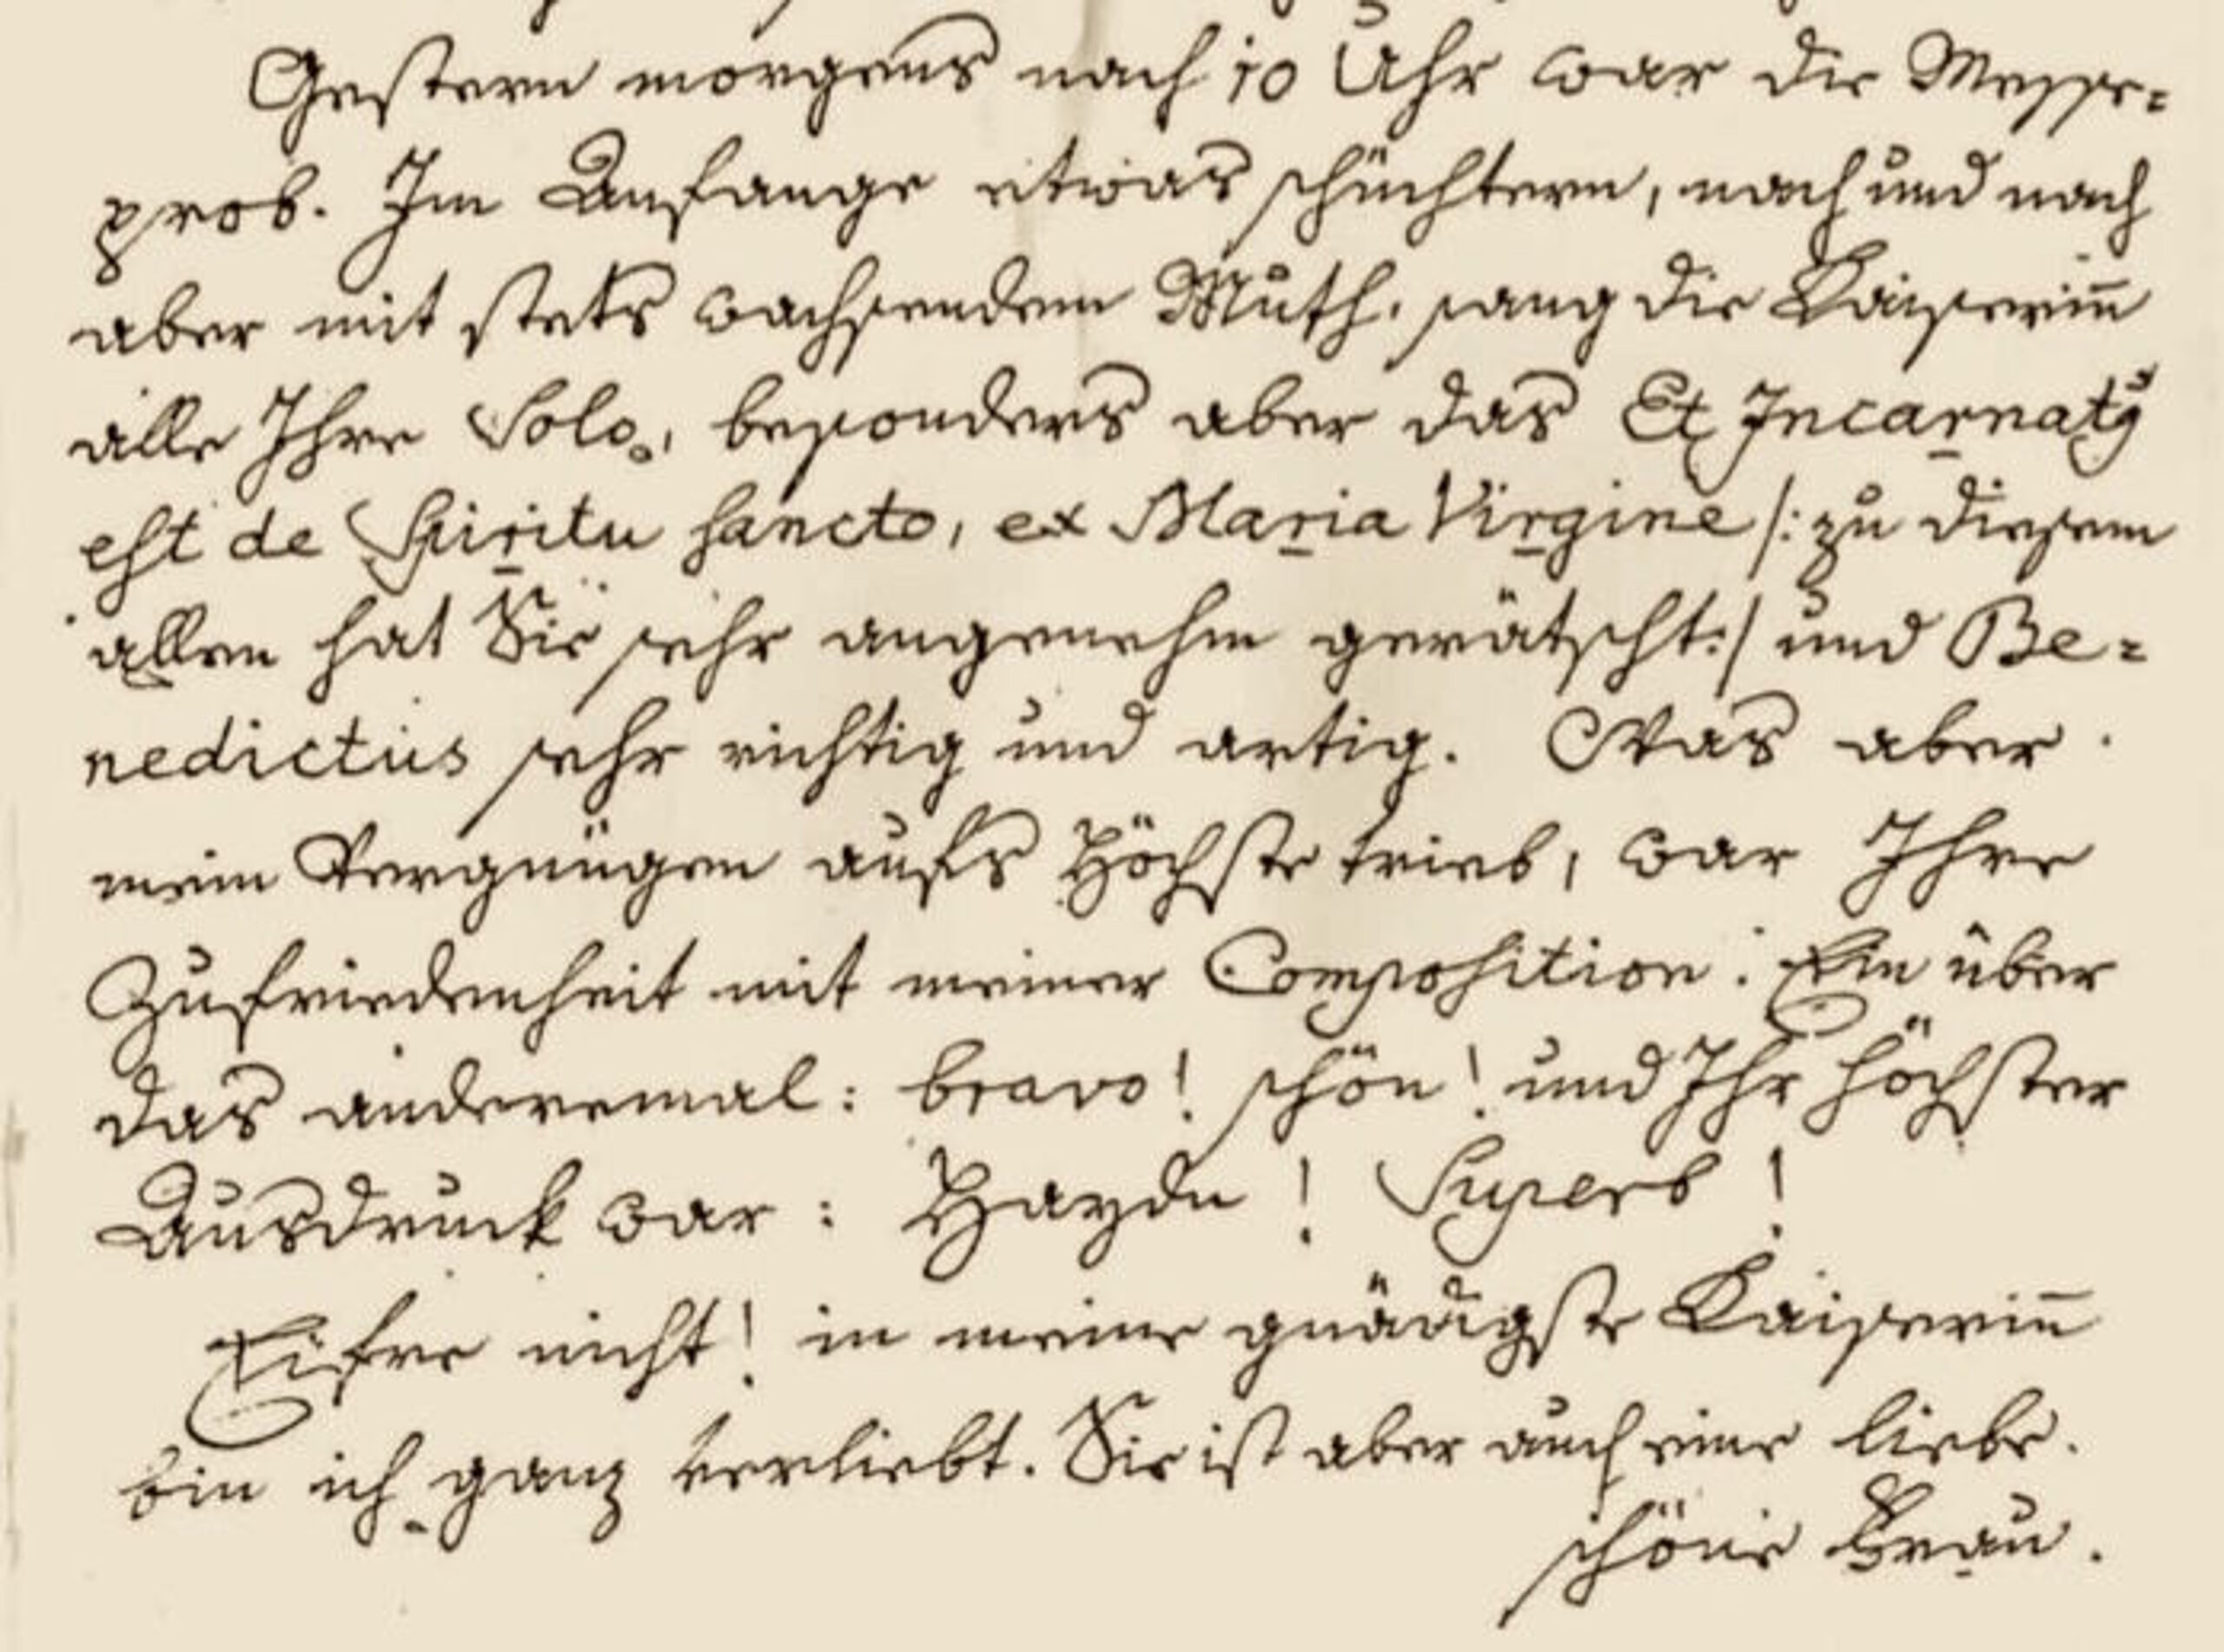 Gestern morgens nach 10 Uhr war die Messe=
prob. Im Anfange etwas schüchtern, nach und nach
aber mit stets wachsendem Muth, sang die Kaiserin̅
alle Ihre Solo, besonders aber das Et Incarnatꝰ
est de Spiritu sancto, ex Maria Virgine /: zu diesem
allen hat Sie sehr angenehm gerätscht :/ und Be=
nedictus sehr richtig und artig. Was aber
mein Vergnügen aufs Höchste trieb, war Ihre
Zufriedenheit mit meiner Composition. Ein über
das anderemal: bravo! schön! und Ihr höchster
Ausdruck war: Haydn! Superb!
Eifre nicht! in meine gnädigste Kaiserin̅
bin ich ganz verliebt. Sie ist aber auch eine liebe.
schöne Frau.